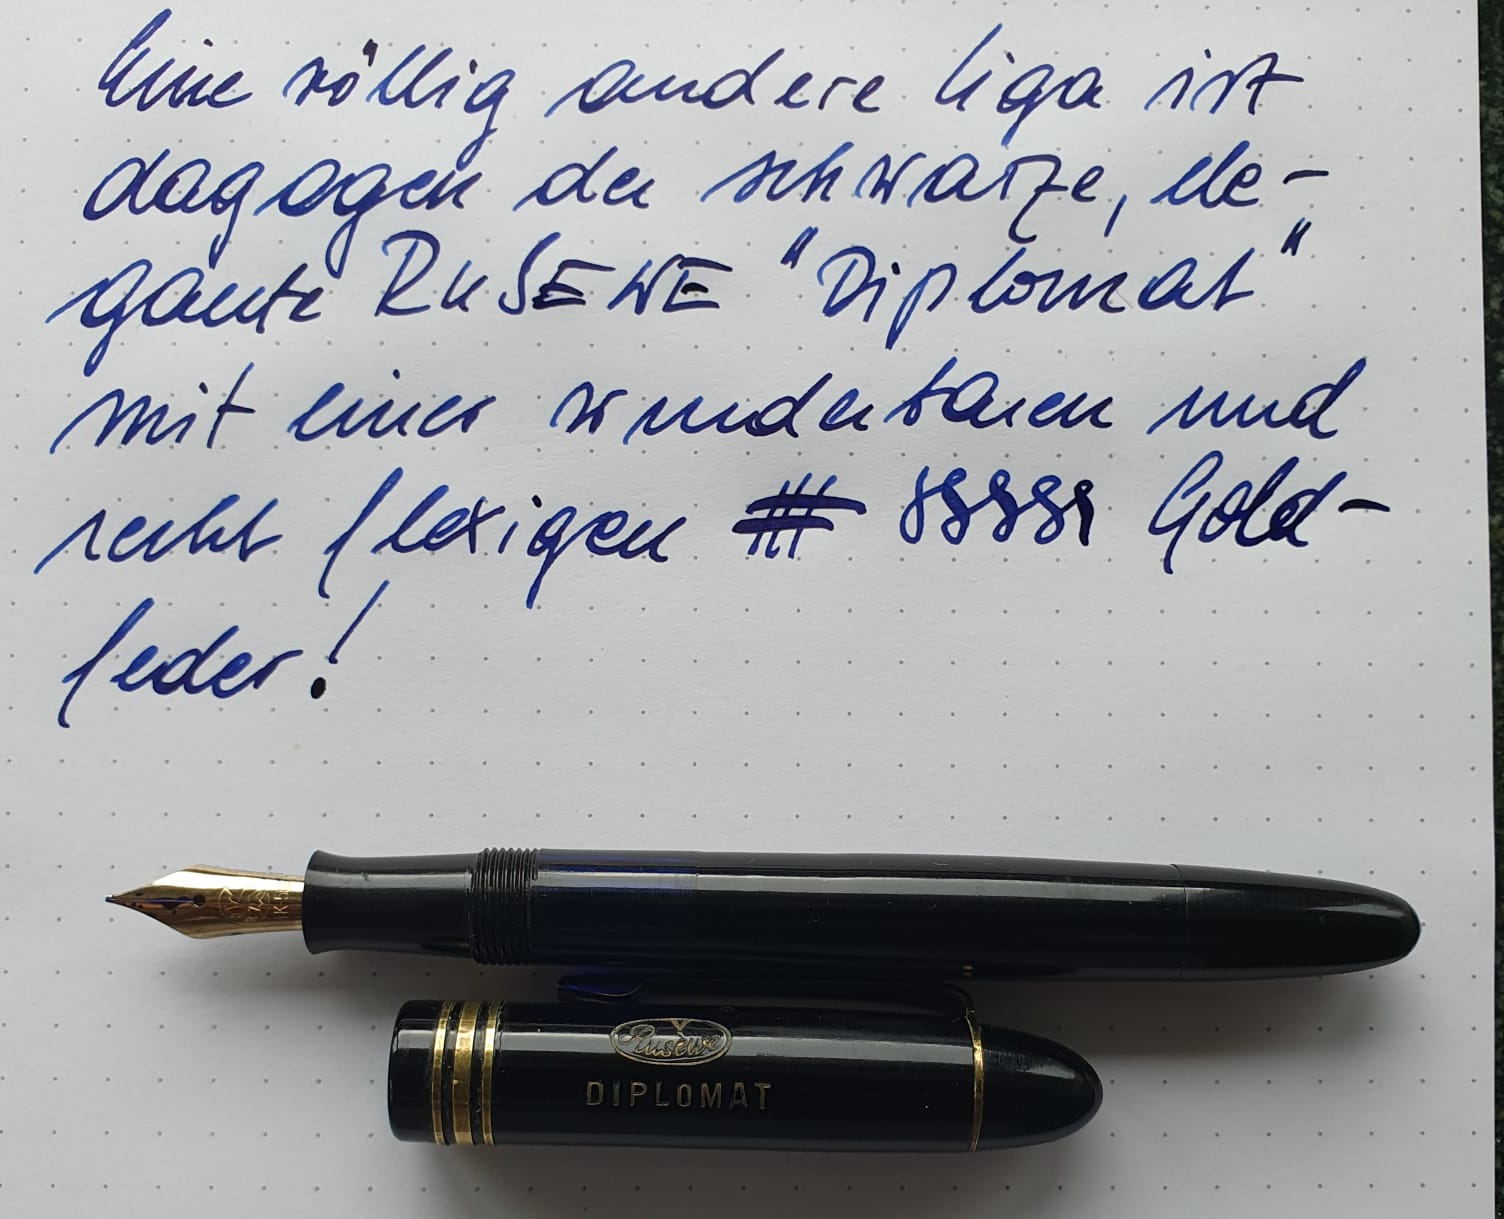 Eine völlig andere Liga ist
dagegen der schwarze, ele-
gante RUSEWE "Diplomat"
mit einer wunderbaren und
recht flexigen Gold-
feder!
Rusewe
DIPLOMAT